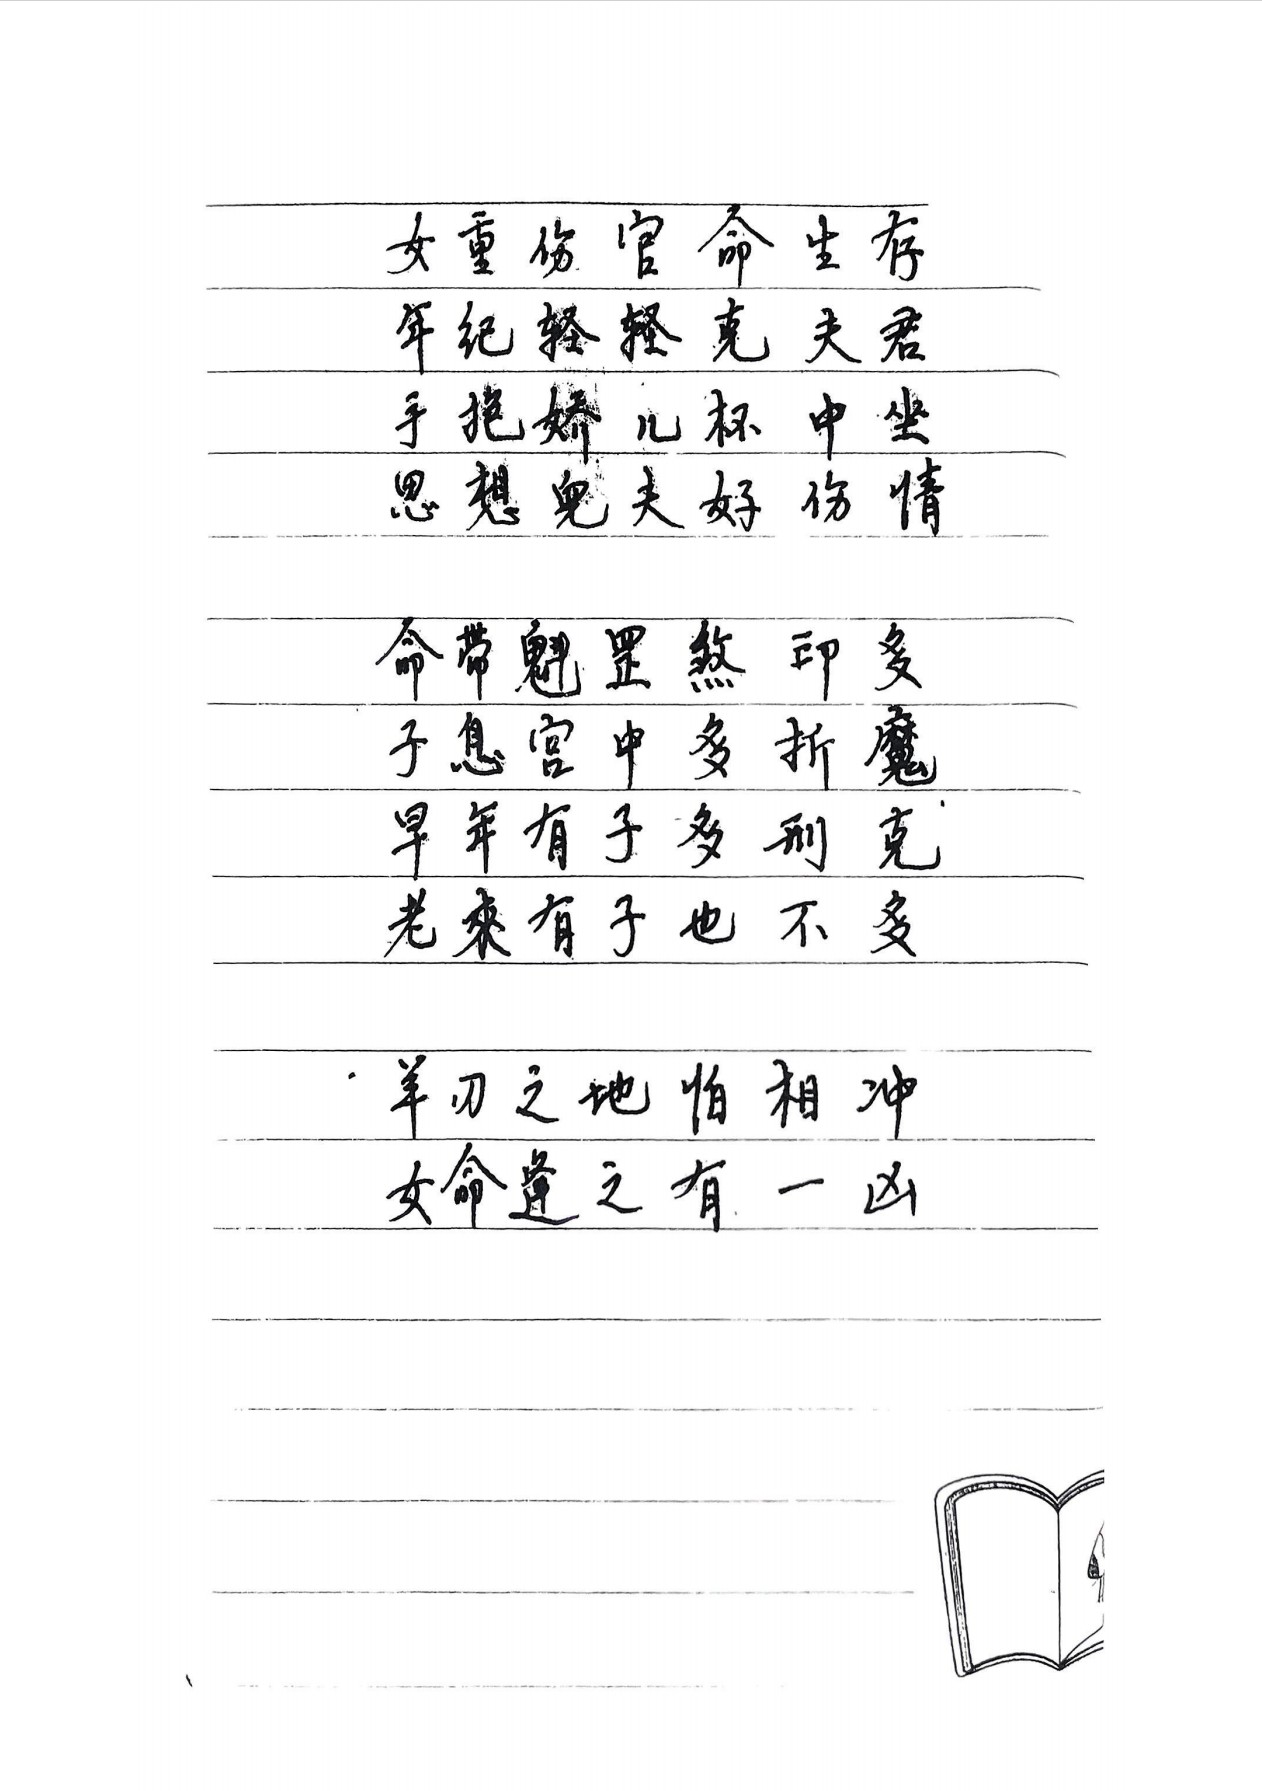 女重伤官命生存
年纪轻轻克夫君
手抱娇儿杯中坐
思想儿夫好伤情
命带魁罡煞印多
子息宫中多折魔
早年有子多刑克
老來有子也不多
羊刃之地怕相冲
女命逢之有一凶